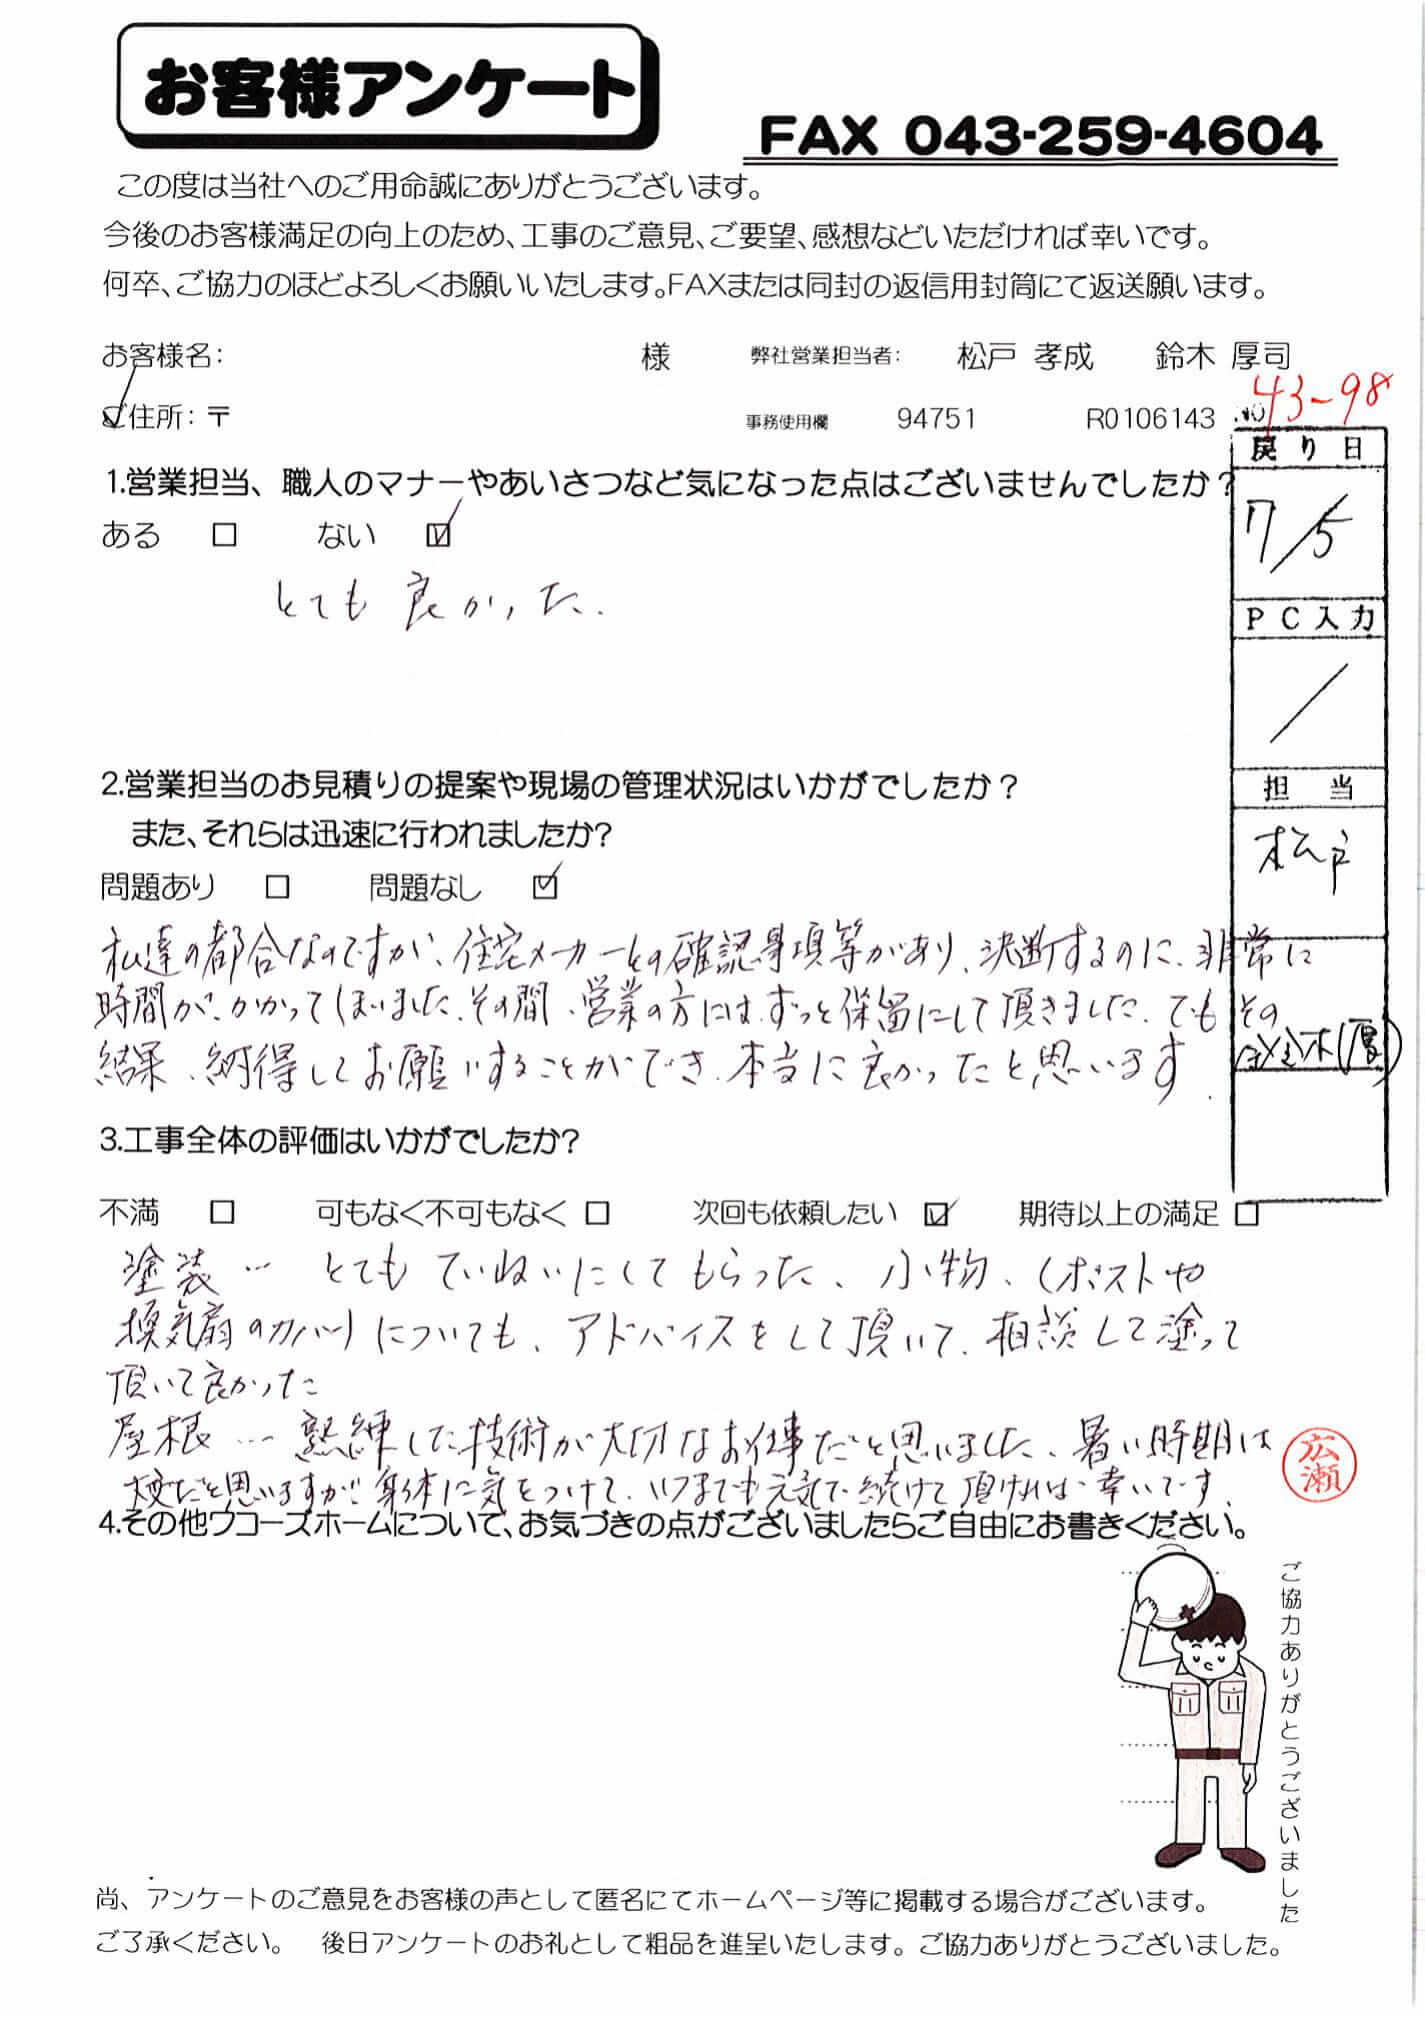 お客様アンケート
FAX 043-259-4604
この度は当社へのご用命誠にありがとうございます。
今後のお客様満足の向上のため、工事のご意見、ご要望、感想などいただければ幸いです。
何卒、ご協力のほどよろしくお願いいたします。FAXまたは同封の返信用封筒にて返送願います。
お客様名: 様 弊社営業担当者: 松戸 孝成 鈴木 厚司
ご住所: 〒 事務使用欄 94751 R0106143 .NO 43-98
戻り日
7/5
PC入力
/
担当
松戸
鈴木(厚)
1.営業担当、職人のマナーやあいさつなど気になった点はございませんでしたか?
ある □ ない ☑
とても良かった.
2.営業担当のお見積りの提案や現場の管理状況はいかがでしたか?
また、それらは迅速に行われましたか?
問題あり □ 問題なし ☑
私達の都合なのですが、住宅メーカーとの確認事項等があり、決断するのに、非常に
時間が、かかってしまいました、その間、営業の方には、ずっと保留にして頂きました、でもその
結果、納得してお願いすることができ、本当に良かったと思います.
3.工事全体の評価はいかがでしたか?
不満 □ 可もなく不可もなく □ 次回も依頼したい ☑ 期待以上の満足 □
塗装… とてもていねいにしてもらった、小物、(ポストや
換気扇のカバー)についても、アドバイスをして頂いて、相談して塗って
頂いて良かった
屋根… 熟練した技術が大切なお仕事だと思いました、暑い時期は
大変だと思いますが、身体に気をつけて、いつまでも元気で続けて頂ければ幸いです.
広瀬
4.その他ワコーズホームについて、お気づきの点がございましたらご自由にお書きください。
ご協力ありがとうございました
尚、アンケートのご意見をお客様の声として匿名にてホームページ等に掲載する場合がございます。
ご了承ください。 後日アンケートのお礼として粗品を進呈いたします。ご協力ありがとうございました。